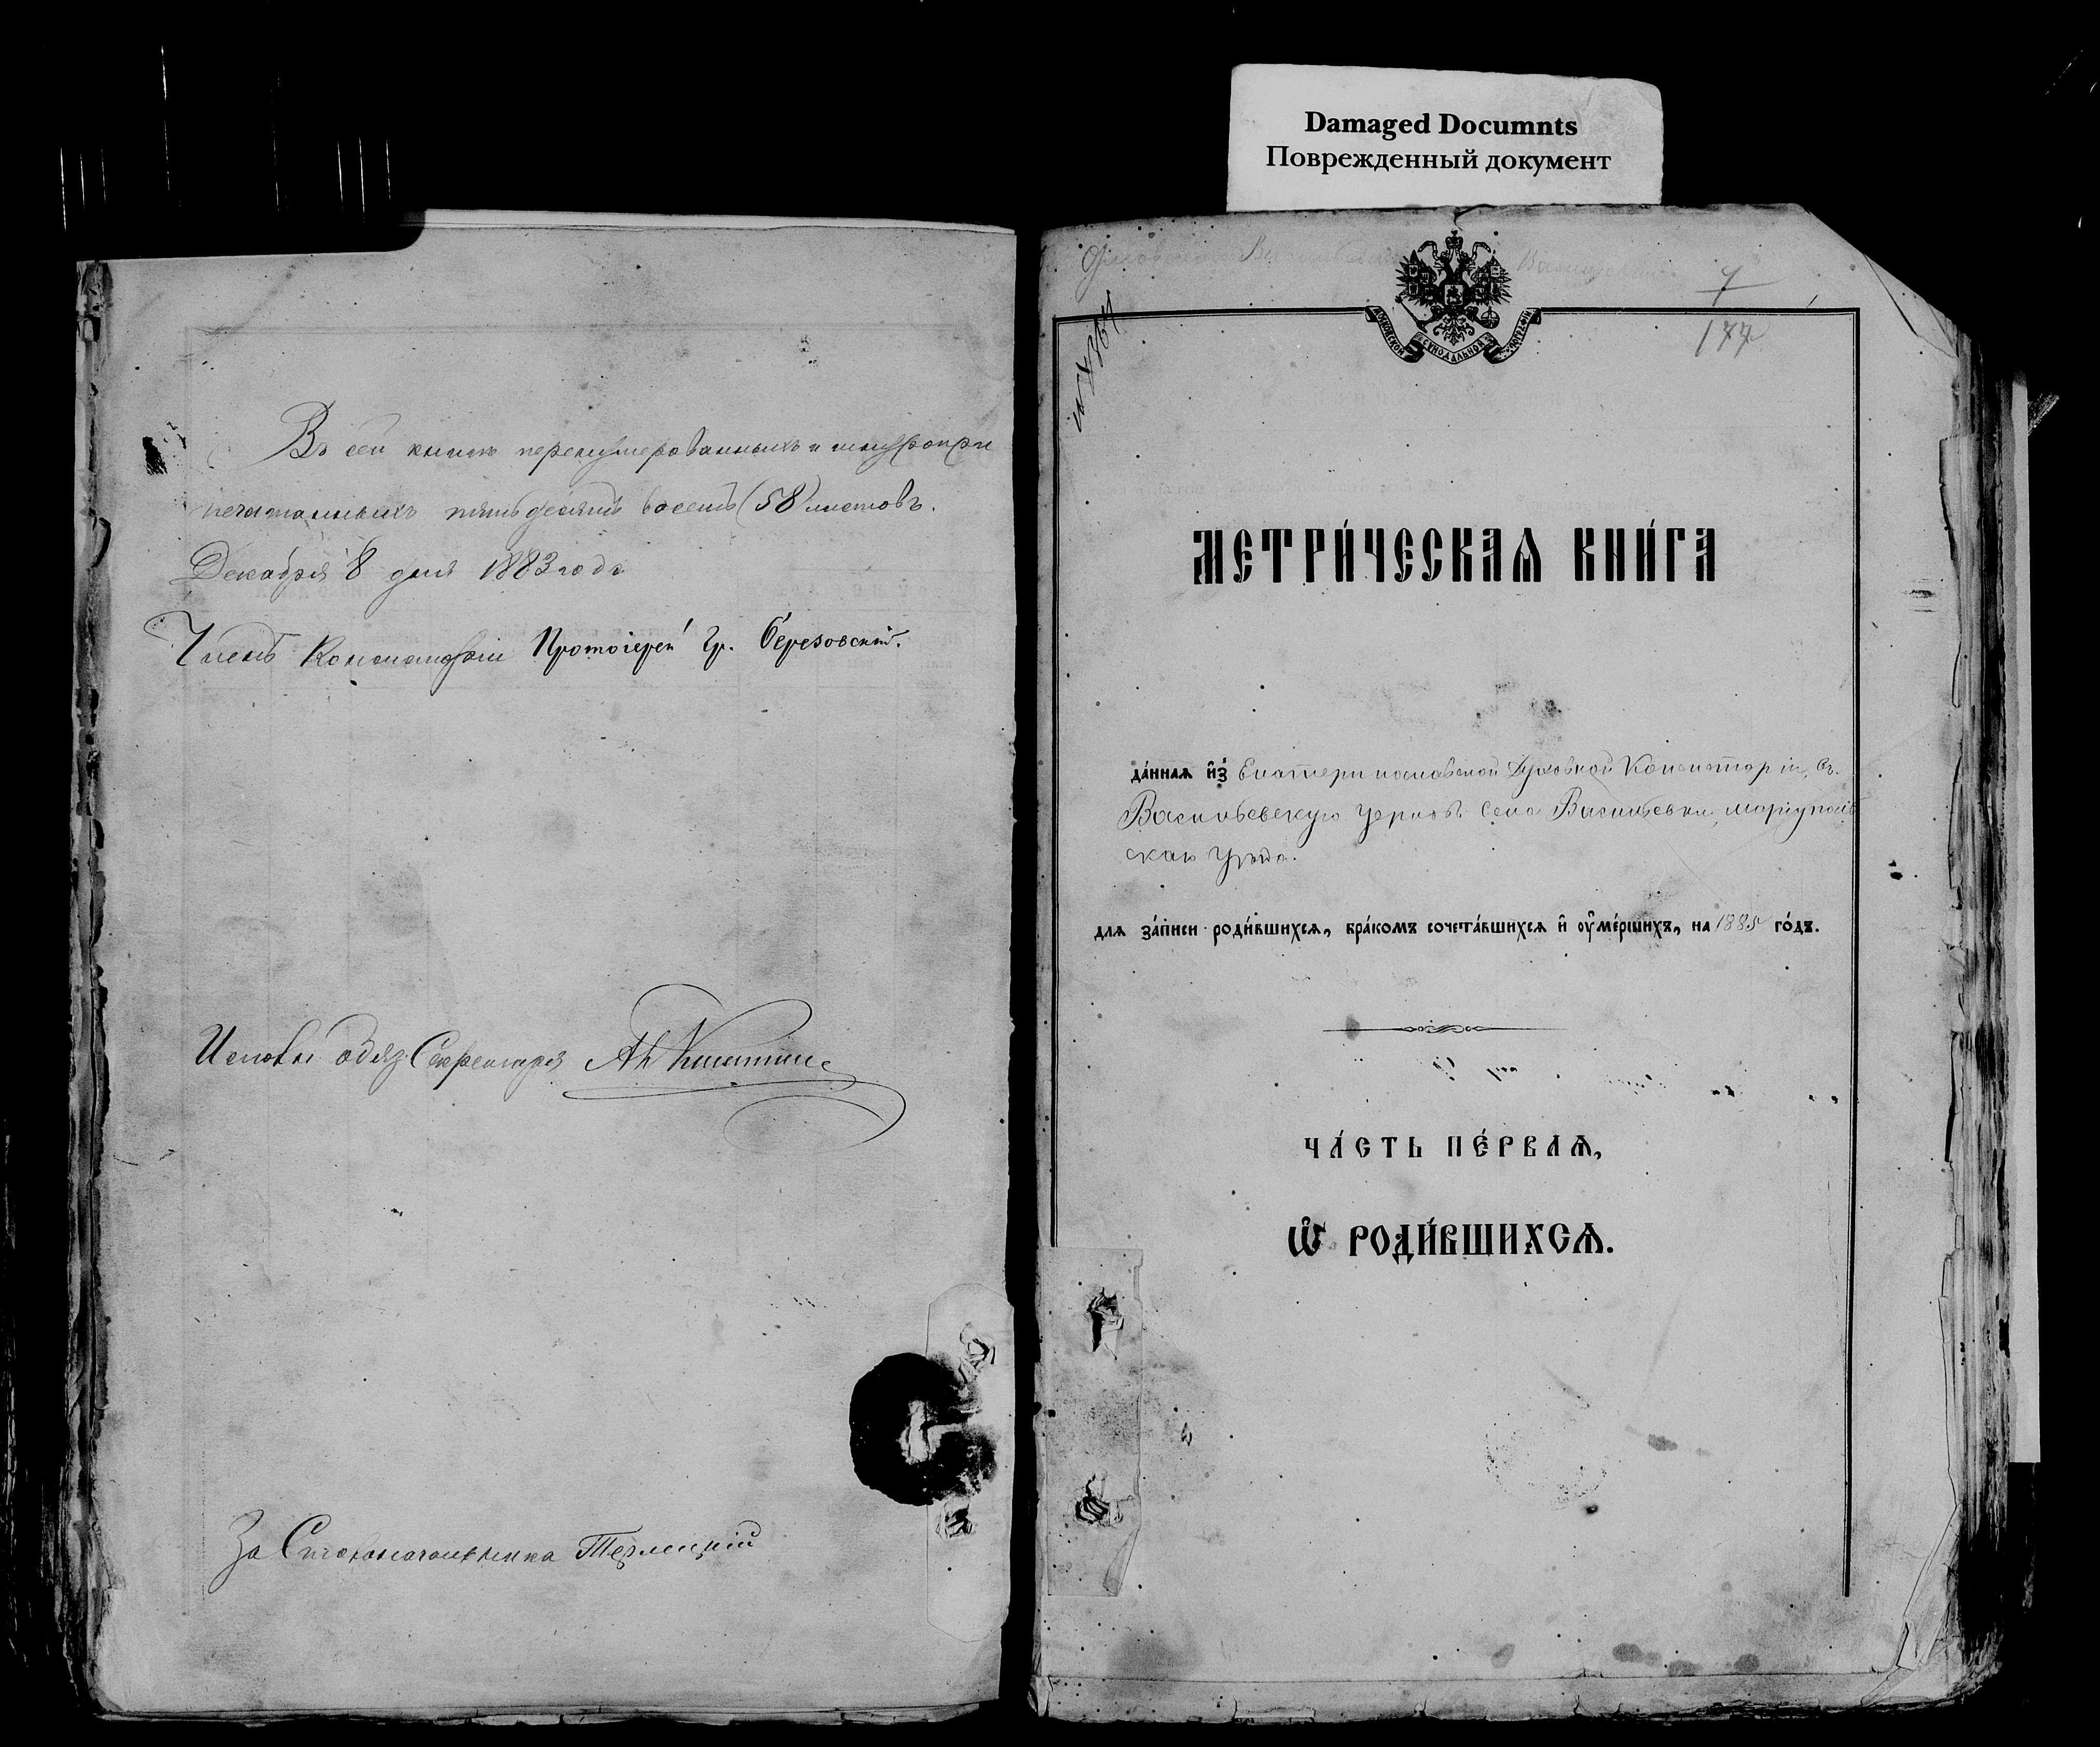 Damaged Documnts
Поврежденный документ
Въ сей книгѣ перенумерованныхъ и
печатанныхъ пятьдесятъ восемь (58) листовъ.
Декабря 8 дня 1883 года
Членъ Консисторіи Протоіерей Гр. Березовскій.
обяз. Секретаря
За Столоначальника Терлецкій
7
177
МОСКОВСКОЙ СѴНОДАЛЬНОЙ ТИПОГРАФІИ
МЕТРИ́ЧЕСКАѦ КНИ́ГА
да́ннаѧ и҆з̾ Екатеринославской Духовной Консисторіи, въ
Васильевскую церковь села Васильевки, Маріуполь
скаго уѣзда.
для за́писи роди́вшихсѧ, бра́комъ сочета́вшихсѧ и҆ ᲂу҆ме́ршихъ, на 1885 го́дъ.
ЧА́СТЬ ПЕ́РВАѦ,
Ѽ РОДИ́ВШИХСѦ.